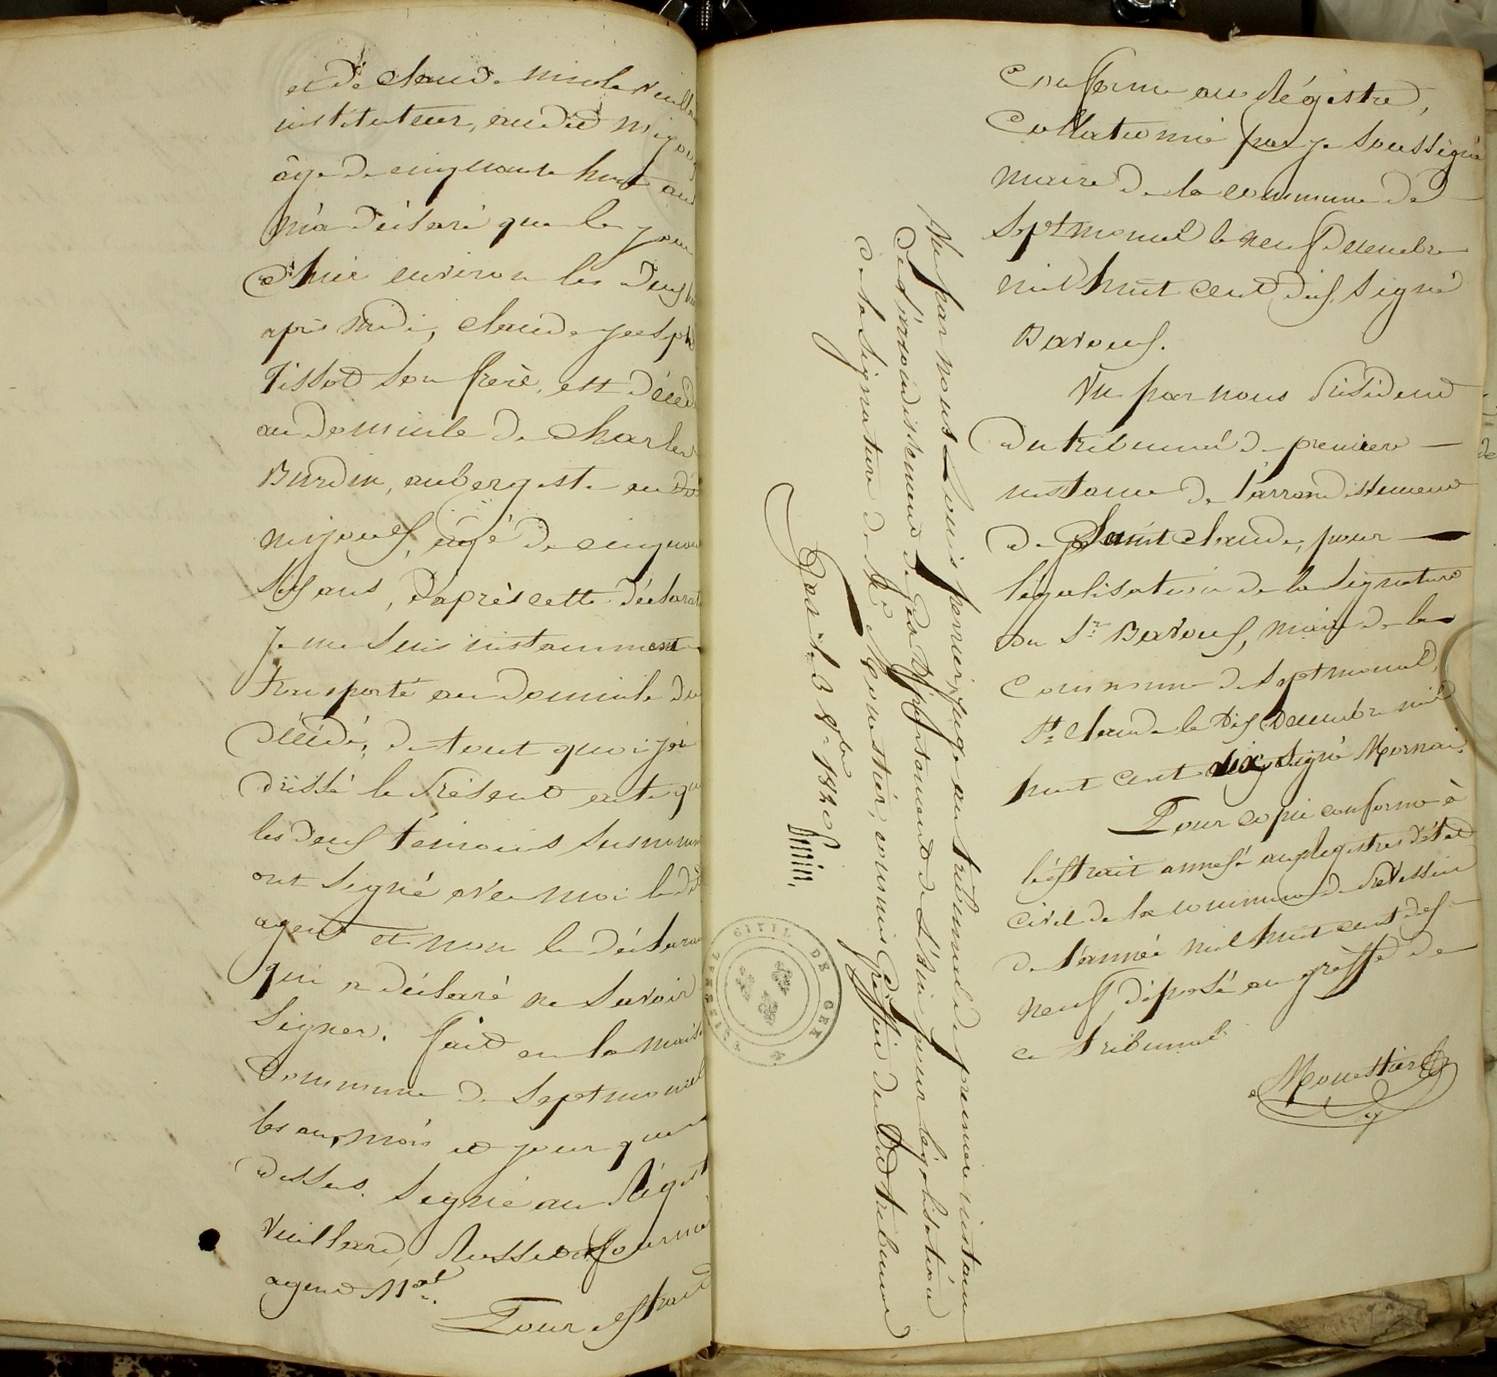 et de claude nicolas veillard
instituteur, audit mijoux
âgé de cinquante huit ans
m'a déclaré que le jour
d'hier environ les deux
après midi, claude joseph
Tissot son frère, est décédé
au domicile de charles
Burdin, aubergiste audit
mijoux, âgé de cinquante
six ans, d'après cette déclarat
je me suis instamment
transporté au domicile du
décédé, de tout quoi j'ai
dréssé le présent acte que
les deux témoins susnommés
ont signé avec moi ledit
agent et non le déclarant
qui a déclaré ne savoir
signer. fait en la maison
commune de Septmoncel
les an, mois et jour que
dessus. signé au Régist
Veillard, Rosset Fournier
agent M.al
Pour extrait
conforme au Régistre,
Collationné par je soussigné
maire de la commune de
Septmoncel le neuf Décembre
mil huit cent dix, signé
Bavoux.
Vu par nous Président
du tribunal de première
instance de l'arrondissement
de Saint claude, pour
légalisation de la signature
du Sr. Bavoux, maire de la
commune de Septmoncel,
St. claude le dix Décembre mil
huit cent dix, signé Mornai.
Pour copie conforme à
l'extrait annexé au Registre d'état
civil de la commune de
de l'année mil huit cent dix
neuf, déposé au greffe de
ce tribunal
Monestier
Vu par nous Louis perrier, juge au tribunal de première instance
de l'arrondissement de Gex Département de L'Ain, pour légalisation
de la signature de Mr. Monestier, commis Greffier dudit tribunal
Gex le 3 8bre 1820
TRIBUNAL CIVIL DE GEX